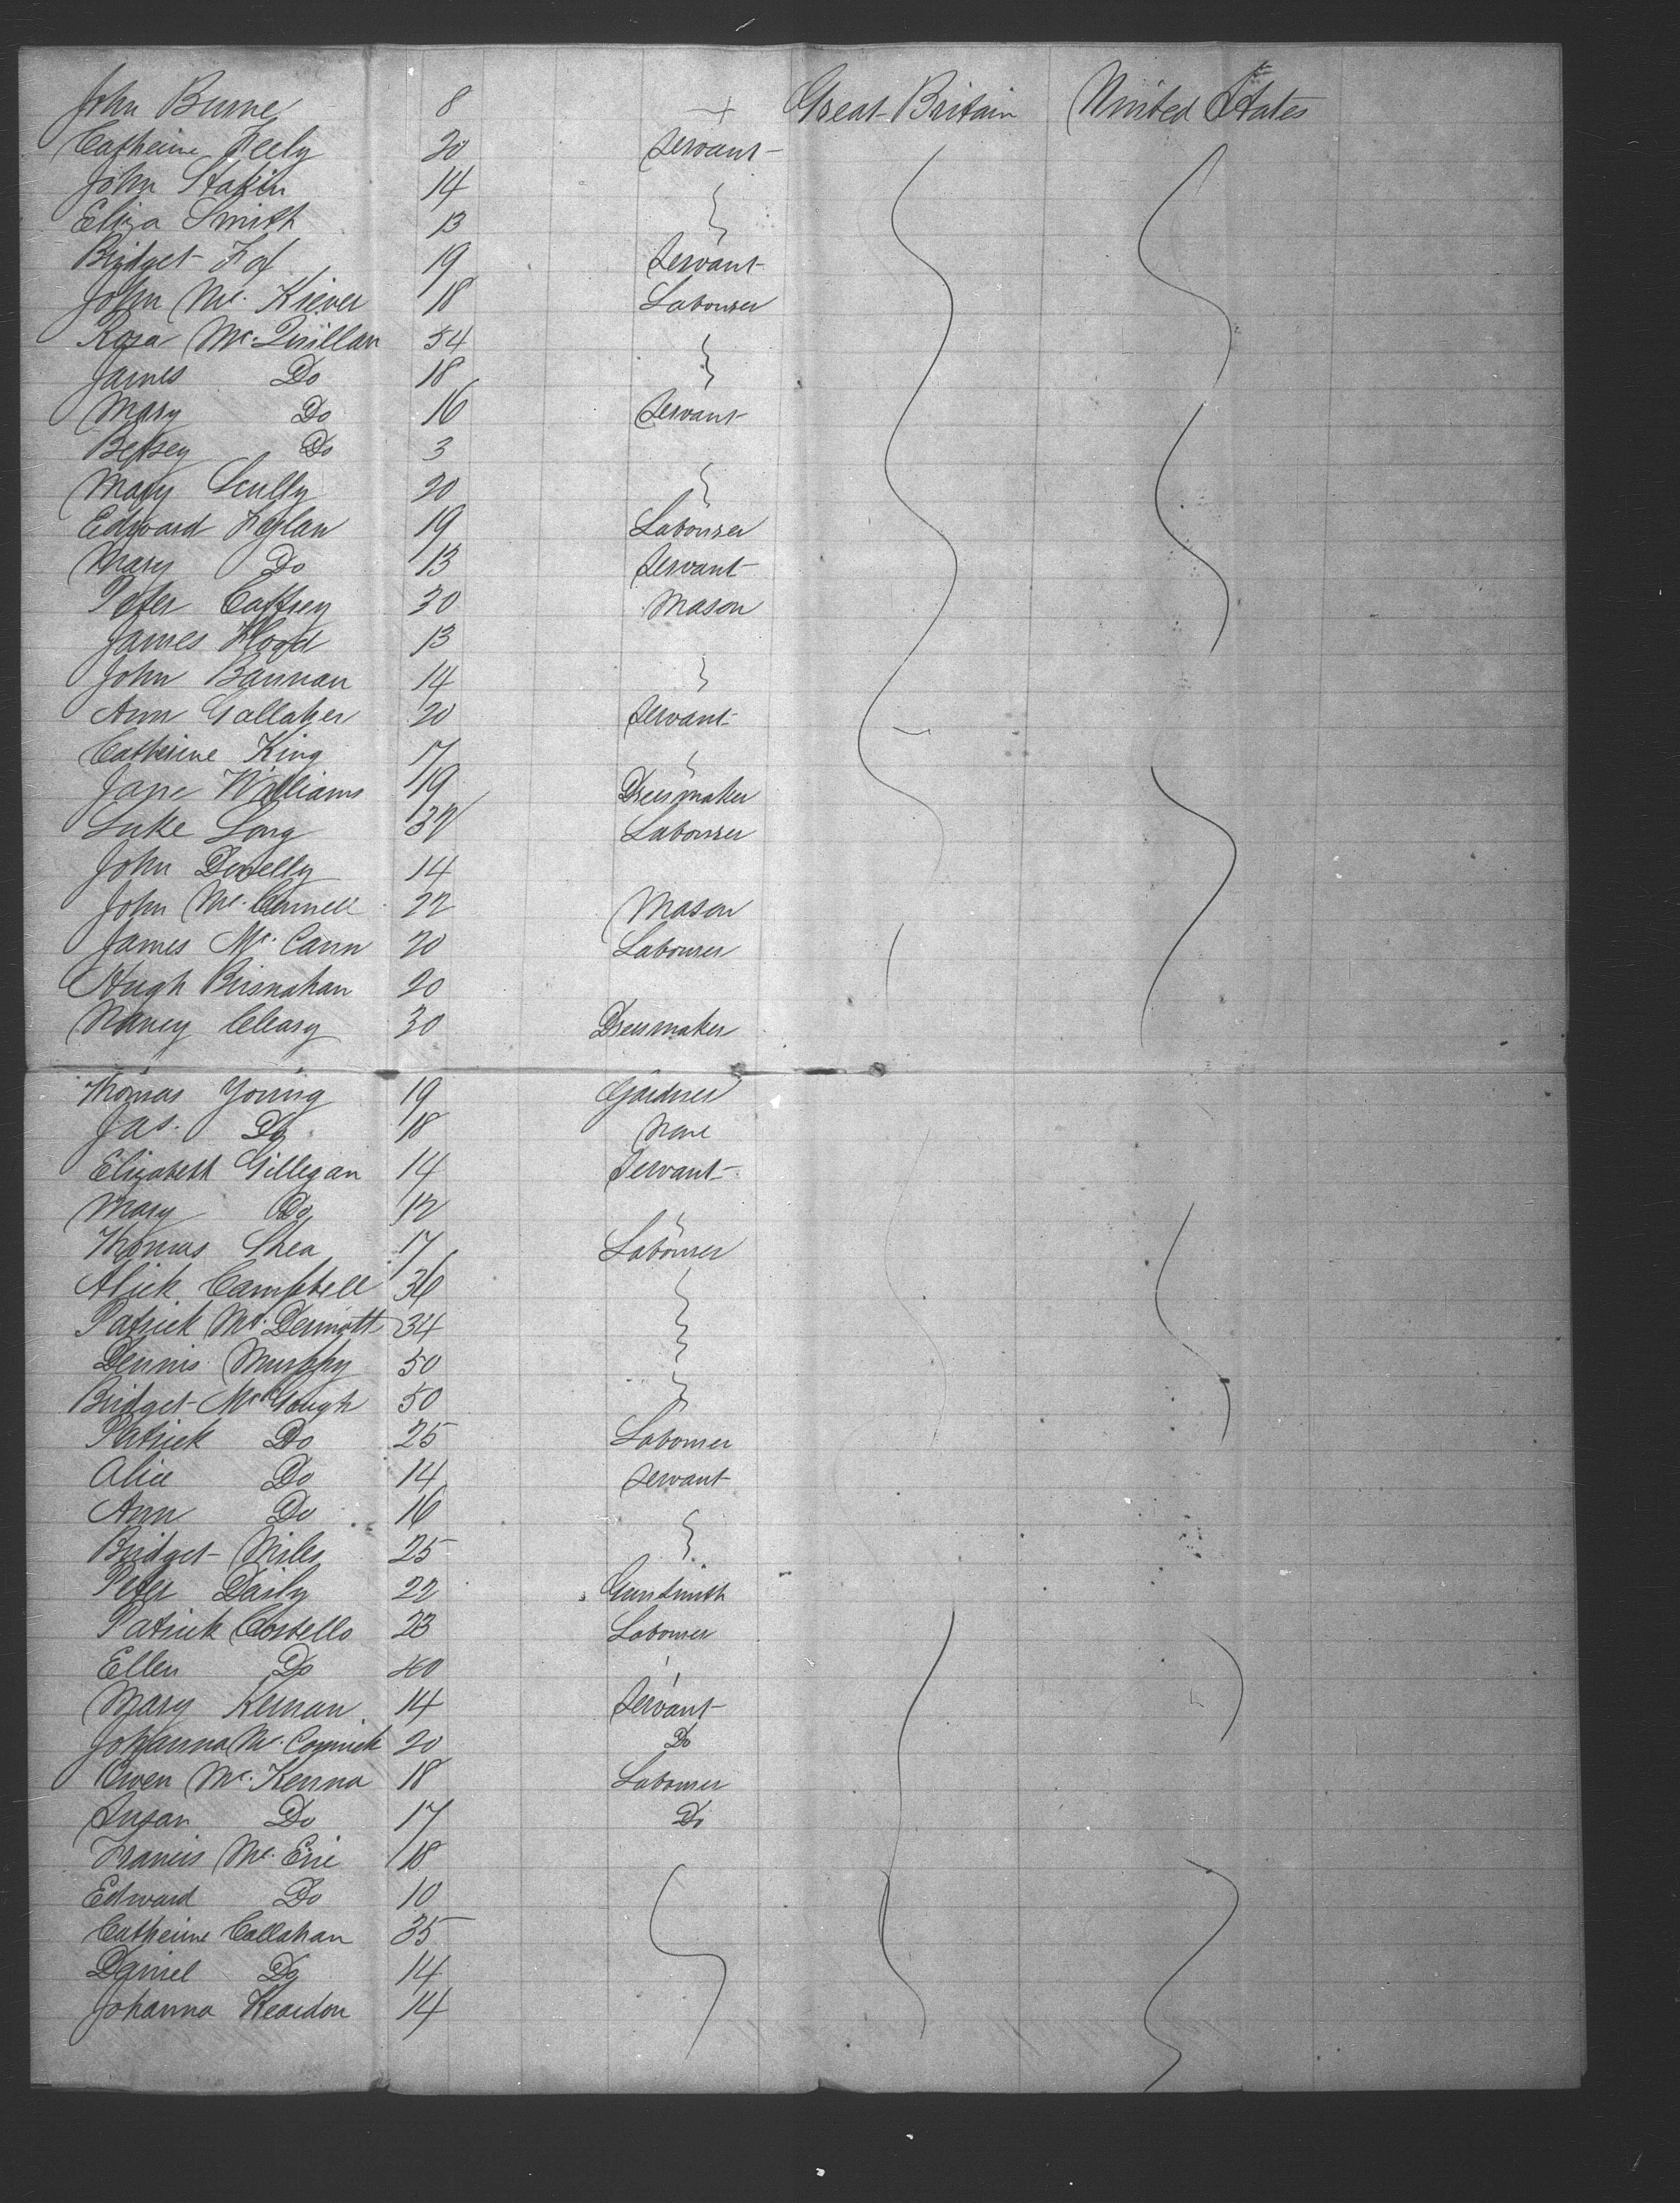 John Burne 8 Great-Britain United States
Catherine Feely 20 Servant
John Stakin 14
Eliza Smith 13
Bridget Fox 19 Servant
John Mc. Kiever 18 Labourer
Rosa Mc. Quillan 54
James Do 18
Mary Do 16 Servant
Betsey Do 3
Mary Scully 20
Edward Feylan 19 Labourer
Mary Do 13 Servant
Peter Caffrey 30 Mason
James Flood 13
John Bannan 14
Ann Gallaher 20 Servant
Catherine King 17
Jane Williams 19 Dressmaker
Luke Long 37 Labourer
John Donelly 14
John Mc. 22 Mason
James Mc. Cann 20 Labourer
Hugh Brisnahan 20
Nancy Cleary 30 Dressmaker
Thomas Young 19 Gardner
Jas. Do 18 None
Elizabeth Gillegan 14 Servant
Mary Do 12
Thomas Shea 17 Labourer
Alick Campbell 36
Patrick Mc. Dermott 34
Dennis Murphy 50
Bridget McGough 50
Patrick Do 25 Labourer
Alice Do 14 Servant
Ann Do 16
Bridget Miles 25
Peter Daily 22 Gunsmith
Patrick Costello 23 Labourer
Ellen Do 40
Mary Kernan 14 Servant
Johanna Mc. Cormick 20 Do
Owen Mc. Kenna 18 Labourer
Susan Do 17 Do
Francis Mc. 18
Edward Do 10
Catherine Callahan 35
Daniel Do 14
Johanna Reardon 14